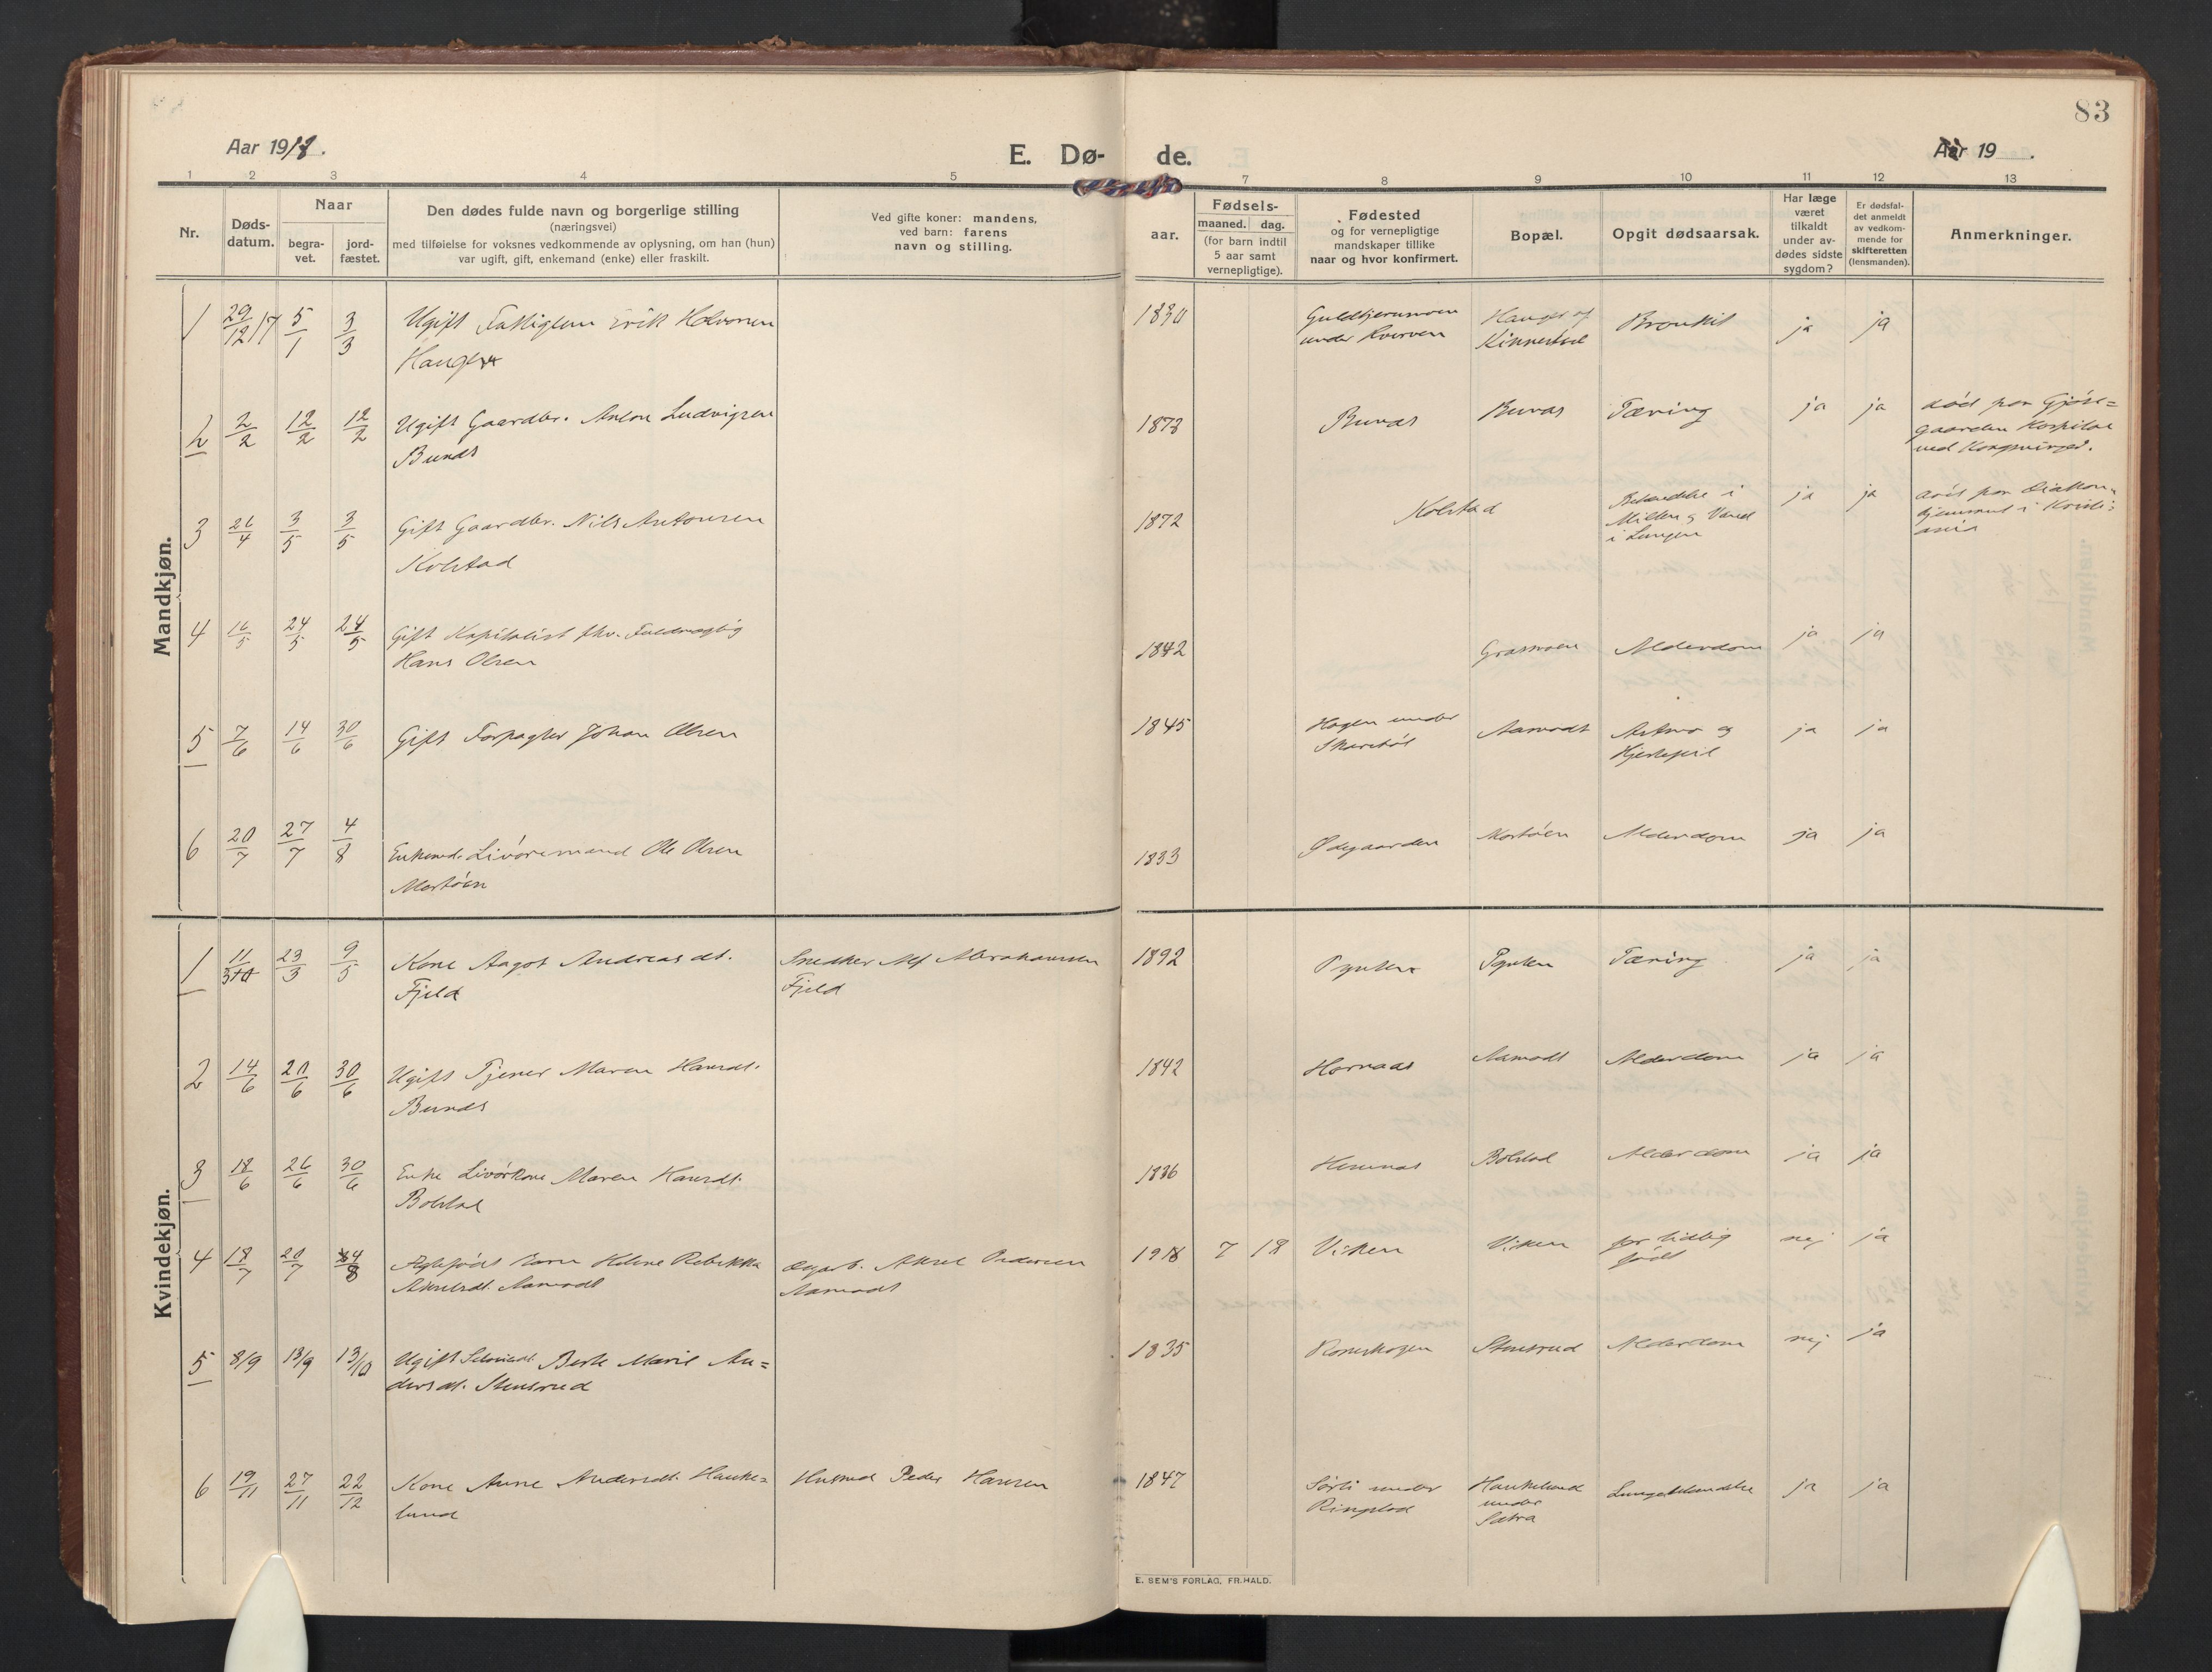 83
Aar 1918.
E. Dø- de.
Aar 19 .
1 2 3 4 5 7 8 9 10 11 12 13
Nr.
Døds-
datum.
Naar
begra-
vet.
jord-
fæstet.
Den dødes fulde navn og borgerlige stilling
(næringsvei)
med tilføielse for voksnes vedkommende av oplysning, om han (hun)
var ugift, gift, enkemand (enke) eller fraskilt.
Ved gifte koner: mandens,
ved barn: farens
navn og stilling.
aar.
Fødsels-
maaned. dag.
(for barn indtil
5 aar samt
vernepligtige).
Fødested
og for vernepligtige
mandskaper tillike
naar og hvor konfirmert.
Bopæl.
Opgit dødsaarsak.
Har læge
været
tilkaldt
under av-
dødes sidste
sygdom?
Er dødsfal-
det anmeldt
av vedkom-
mende for
skifteretten
(lensmanden).
Anmerkninger.
Mandkjøn.
1 29/12 17 5/1 3/3 Ugift Fattiglem Erik Halvorsen
Hauger
1830
under
ja ja
2 2/2 12/2 12/2 Ugift Gaardbr. Anton Ludvigsen
Bunæs
1873 Bunæs Bunæs Tæring ja ja
død paa Gjøse=
gaarden Hospital
ved Kongsvinger.
3 26/4 3/5 3/5 Gift Gaardbr. Nils Antonsen
Kolstad
1872 Kolstad
Betændelse i
Milten og Vand
i Lungen
ja ja
død paa Diakon-
hjemmet i Kristi-
ania
4 16/5 24/5 24/5 Gift Kapitalist fhv. Fuldmægtig
Hans Olsen
1842 Grasmoen Alderdom ja ja
5 7/6 14/6 30/6 Gift Forpagter Johan Olsen
1845
Hagen under
Aamodt
Astma og
Hjertefeil
ja ja
6 20/7 27/7 4/8 Enkemd. Livøremand Ole Olsen
Mortøien
1833 Ødegaarden Mortøien Alderdom ja ja
Kvindekjøn.
1 11/3 23/3 9/5 Kone Aagot Andreasdt.
Fjeld
Snedker Alf Abrahamsen
Fjeld
1892 Pynten Pynten Tæring ja ja
2 14/6 20/6 30/6 Ugift Tjener Maren Hansdt.
Bunæs
1842 Hornaas Aamodt Alderdom ja ja
3 18/6 26/6 30/6 Enke Livørkone Maren Hansdt.
Bolstad
1836 Bolstad Alderdom ja ja
4 18/7 20/7 4/8 Ægtefødt Barn Helene Rebekka
Akselsdt. Aamodt
Aksel Pedersen
Aamodt
1918 7 18 Viken Viken
for tidlig
født
nej ja
5 8/9 13/9 13/10 Ugift Berte Marie An=
dersdt. Stensrud
1835 Stensrud Alderdom nej ja
6 19/11 27/11 22/12 Kone Anne Andersdt. Hauke=
lund
Husmd Peder Hansen
1847
Sørli under
Ringstad
Haukelund
under
Sætra
Lungebetændelse ja ja
E. SEM'S FORLAG, FR.HALD.